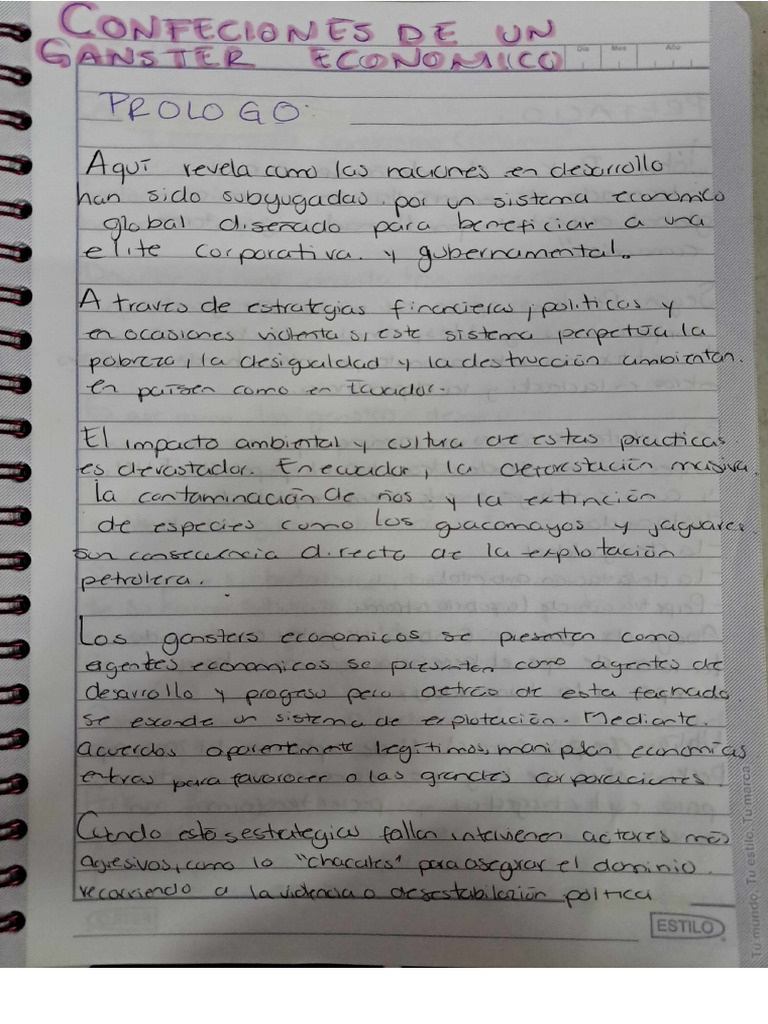 CONFECIONES DE UN
GANSTER ECONOMICO
Dia Mes Año
PROLOGO:
Aquí revela como las naciones en desarrollo
han sido subyugadas por un sistema economico
global diseñado para beneficiar a una
elite corporativa. y gubernamental.
A traves de estrategias financieras, politicas y
en ocasiones violentas, este sistema perpetúa la
pobreza, la desigualdad y la destrucción ambiental.
en paises como en Ecuador.
El impacto ambiental y cultura de estas practicas
es devastador. En ecuador, la deforestación masiva.
la contaminación de ríos y la extinción
de especies como los guacamayos y jaguares
son consecuencia directa de la explotación
petrolera.
Los gansters economicos se presenten como
agentes economicos se presenten como agentes de
desarrollo y progreso pero detras de esta fachada
se esconde un sistema de explotación. Mediante.
acuerdos aparentmente legítimos, manipulan economías
enteras para favorocer a las grandes corporaciones.
Cuando estas estrategias fallan intervienen actores más
agresivos, como lo "chacales" para asegurar el dominio.
recorriendo a la violencia o desestabilazión política
ESTILO
Tu mundo. Tu estilo. Tu marca